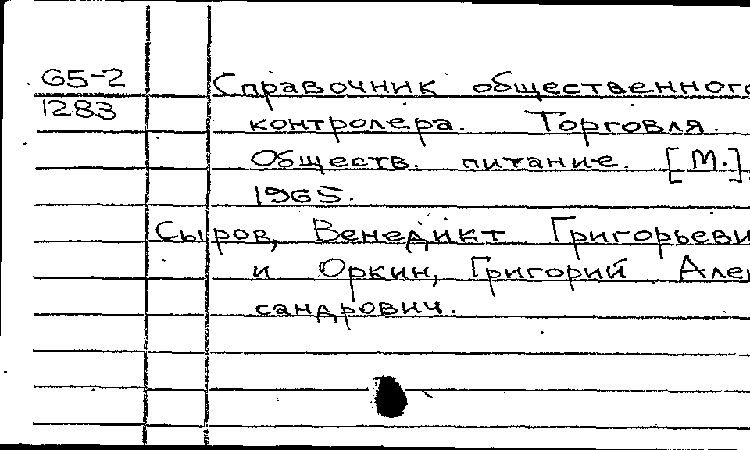 65-2 Справочник общественного
1283 контролера. Торговля.
Обществ. питание. [М.],
1965.
Сыров, Венедикт Григорьеви
и Оркин, Григорий Алек
сандрович.